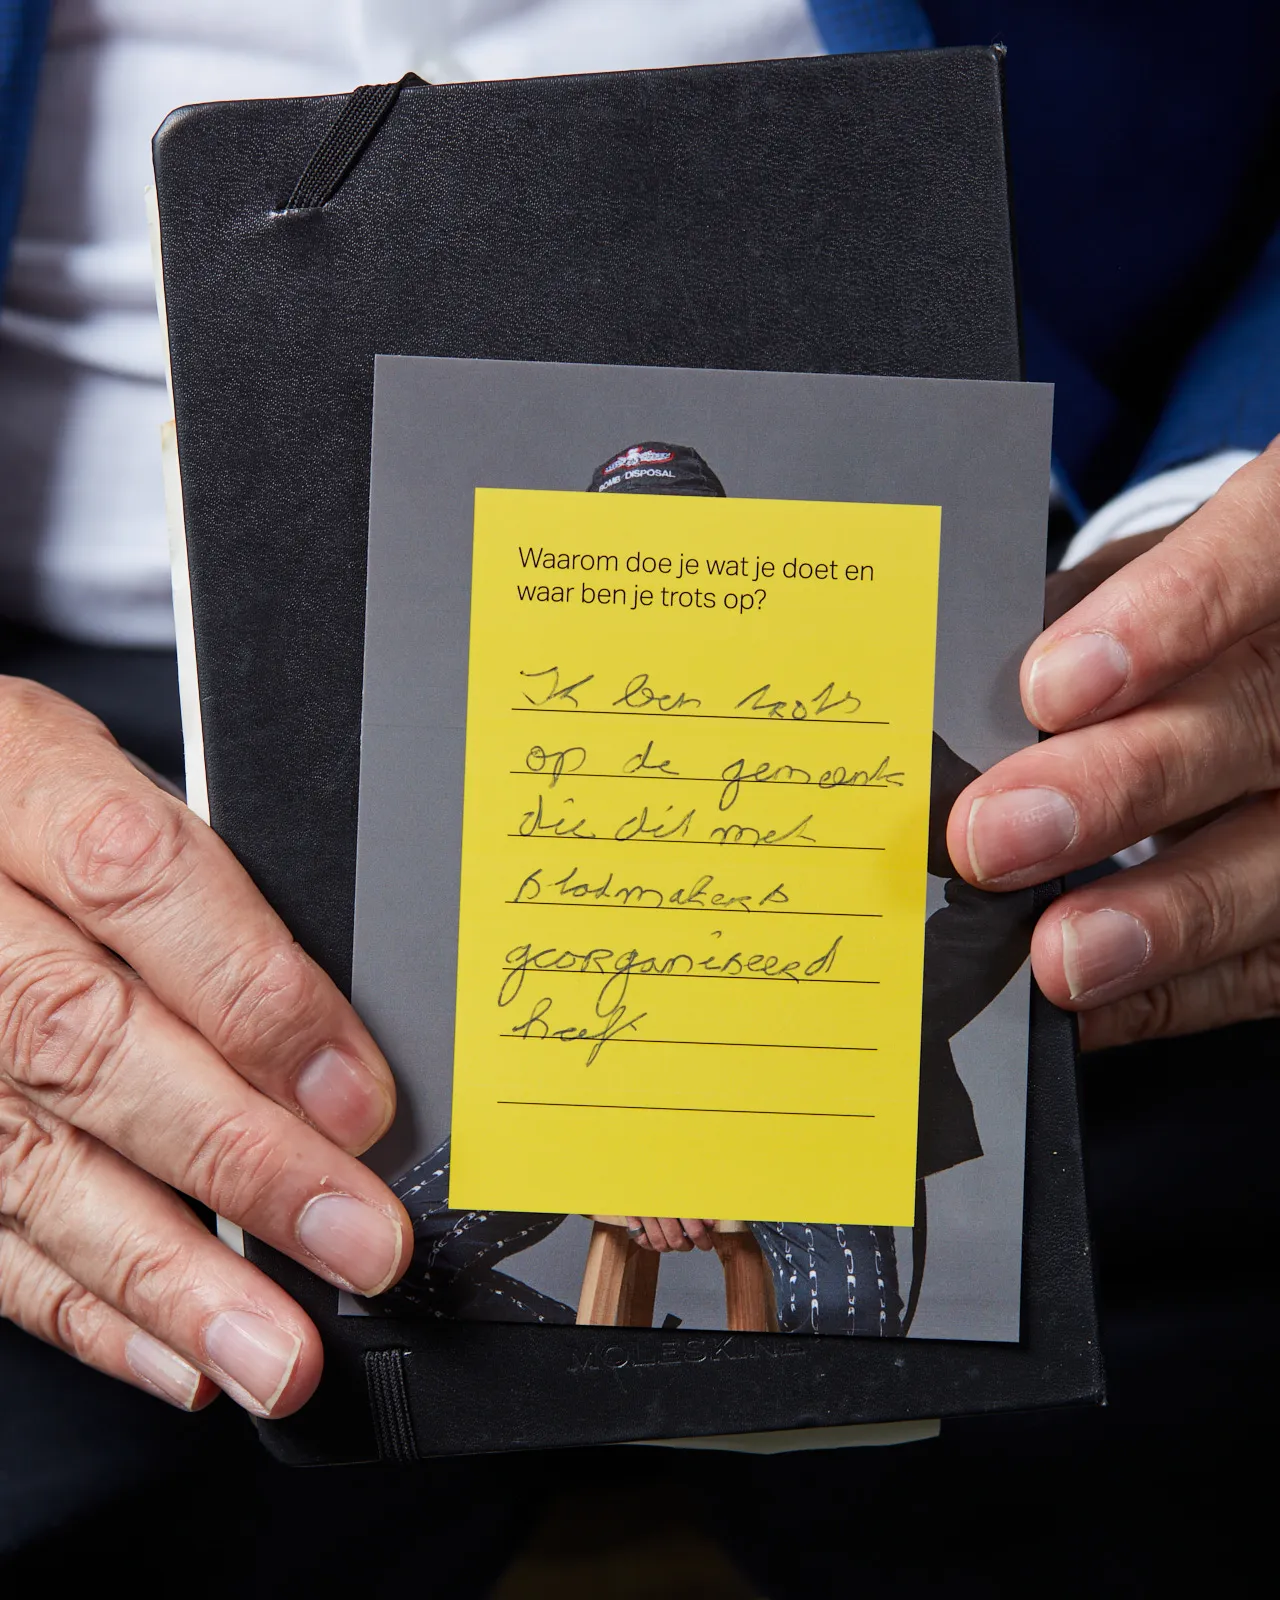 BOMB DISPOSAL
Waarom doe je wat je doet en
waar ben je trots op?
Ik ben trots
op de gemeente
die dit met
stadmakers
georganiseerd
heeft
MOLESKINE